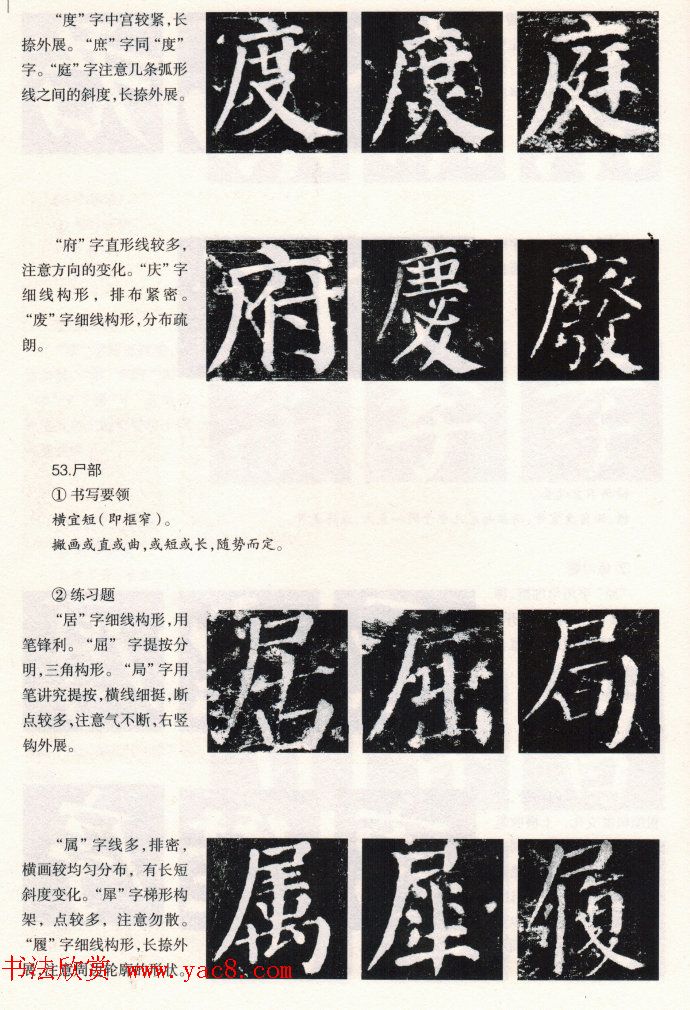 “度”字中宫较紧,长
捺外展。“庶”字同“度”
字。“庭”字注意几条弧形
线之间的斜度,长捺外展。
度 度 庭
“府”字直形线较多,
注意方向的变化。“庆”字
细线构形，排布紧密。
“废”字细线构形,分布疏
朗。
府 慶 廢
53.尸部
① 书写要领
横宜短(即框窄)。
撇画或直或曲,或短或长,随势而定。
② 练习题
“居”字细线构形,用
笔锋利。“屈” 字提按分
明,三角构形。“局”字用
笔讲究提按,横线细挺,断
点较多,注意气不断,右竖
钩外展。
居 屈 局
“属”字线多,排密,
横画较均匀分布，有长短
斜度变化。“犀”字梯形构
架，点较多，注意勿散。
“履”字细线构形,长捺外
展,注意 轮廓 形状。
属 犀 履
书法欣赏 www.yac8.com